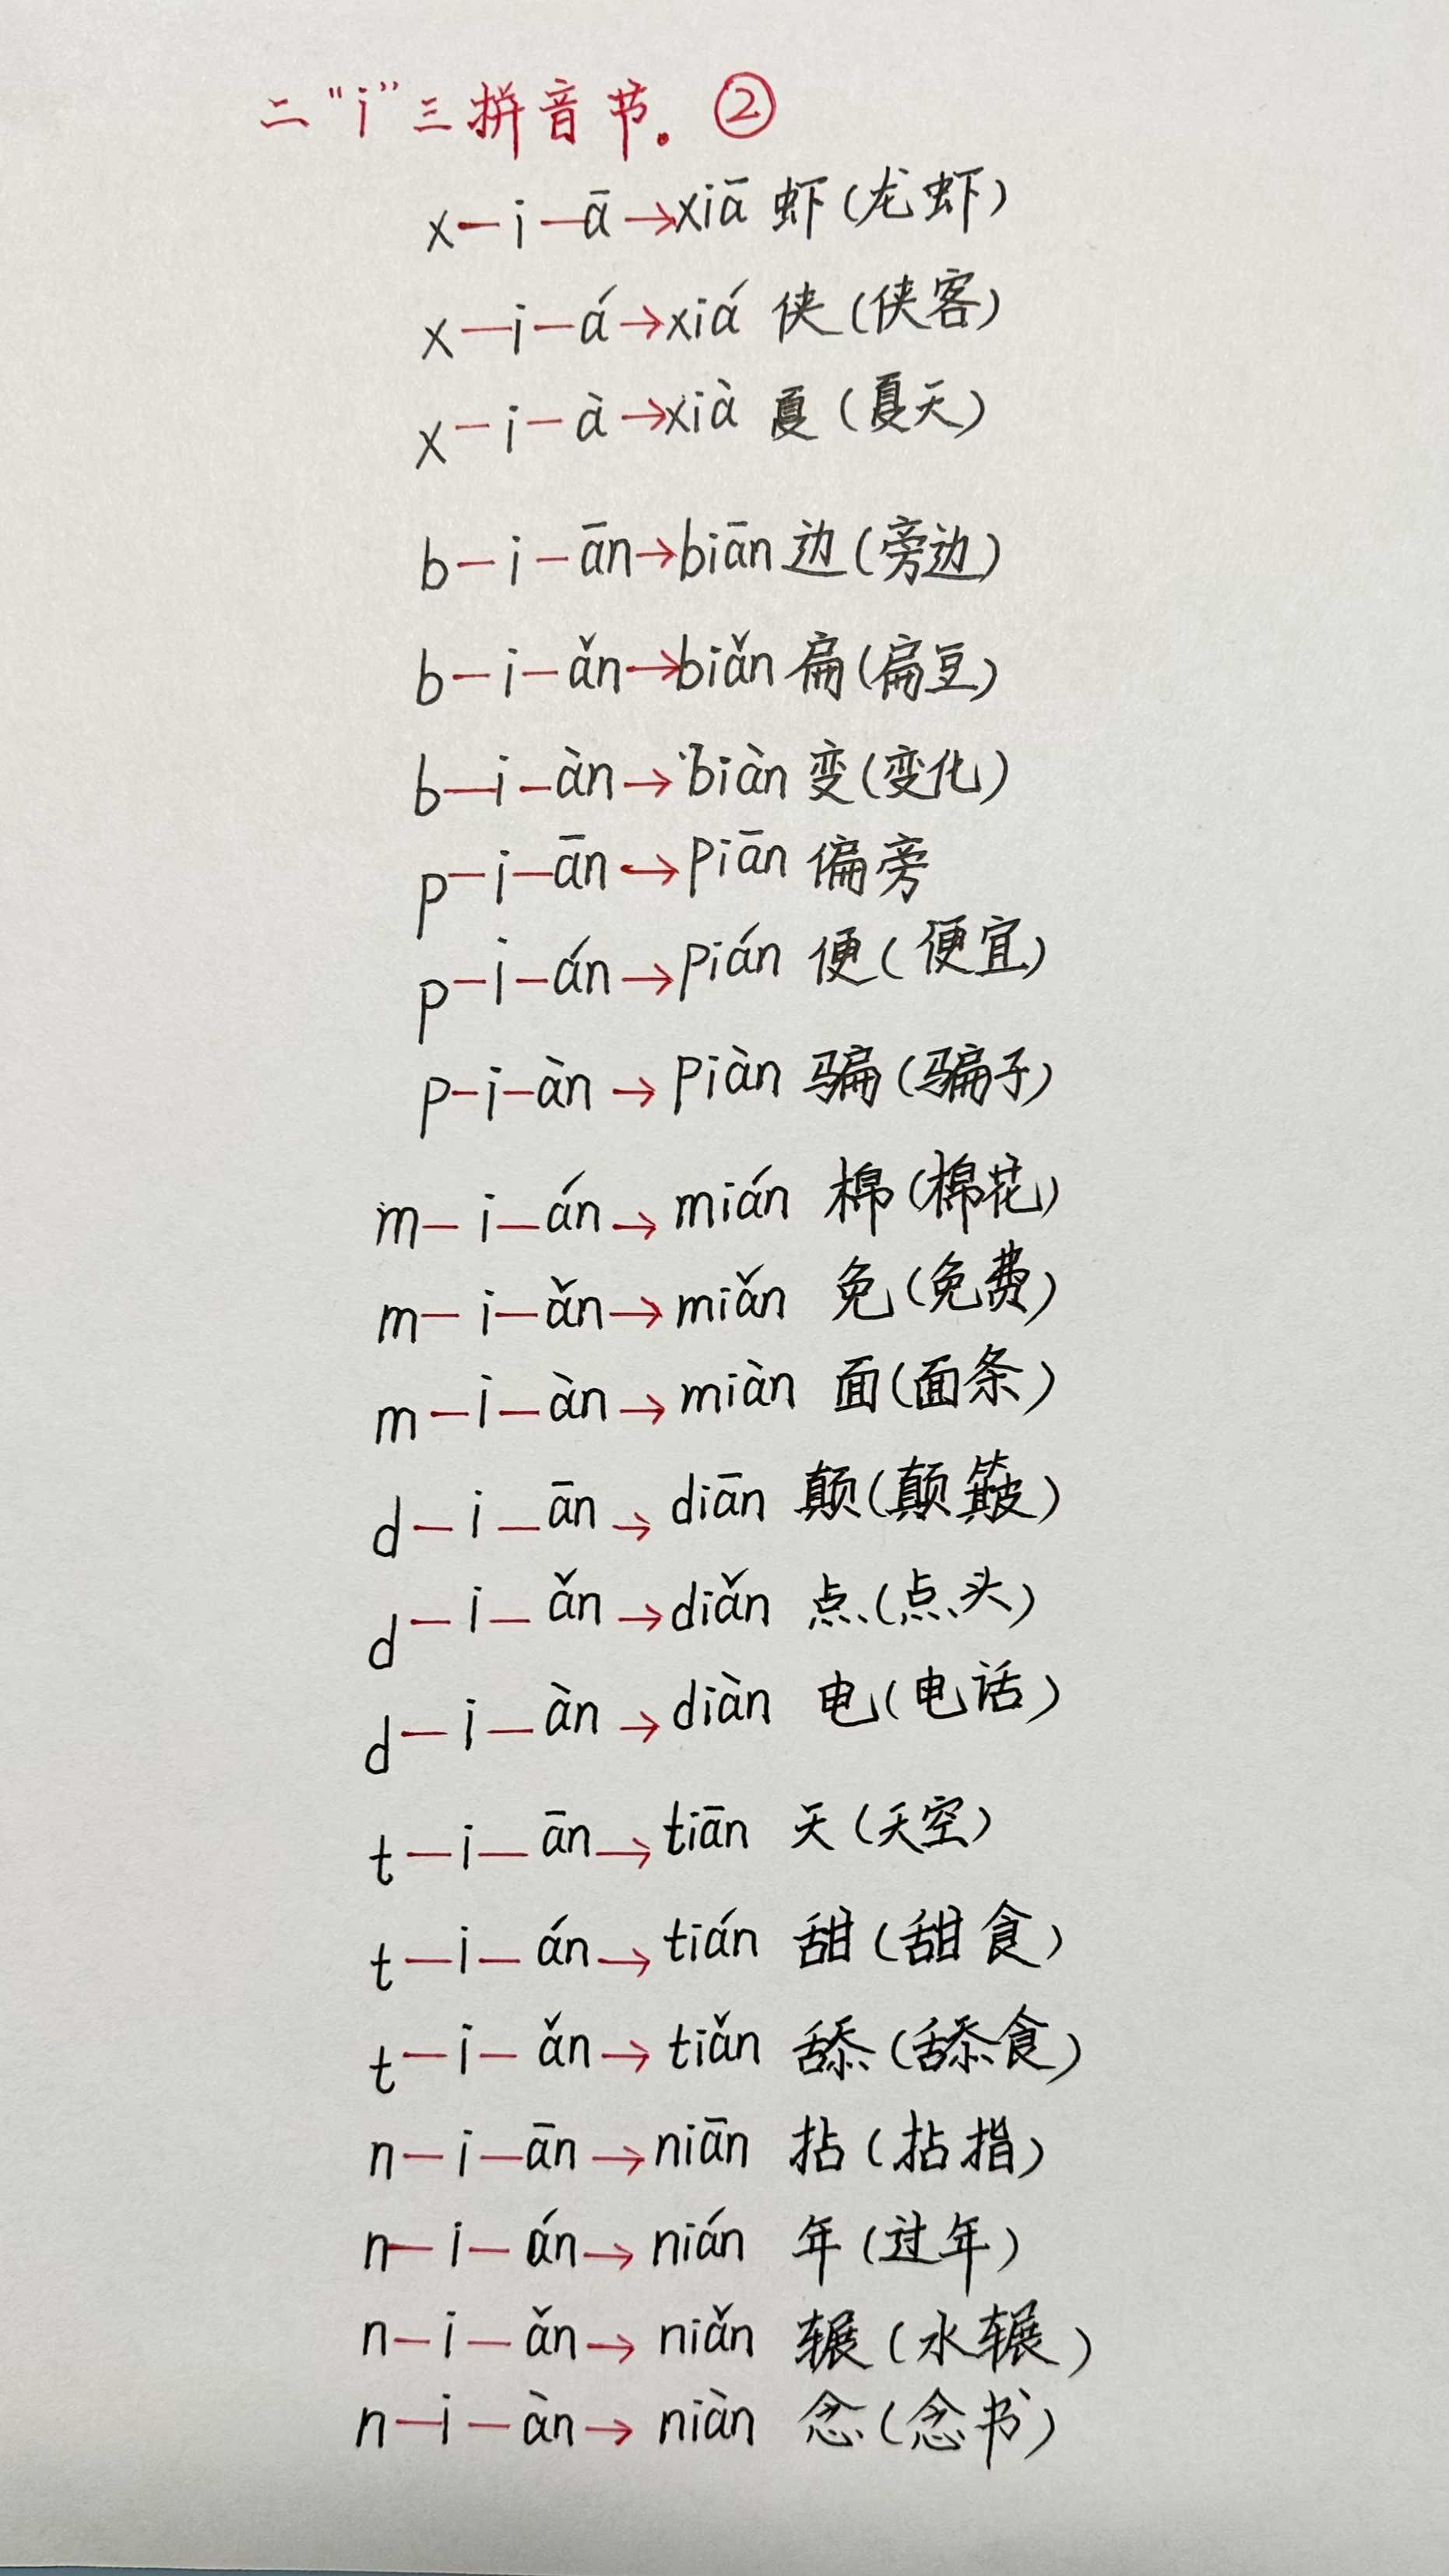 二“i”三拼音节。②
x-i-ā→xiā 虾(龙虾)
x-i-á→xiá 侠(侠客)
x-i-à→xià 夏(夏天)
b-i-ān→biān 边(旁边)
b-i-ǎn→biǎn 扁(扁豆)
b-i-àn→biàn 变(变化)
p-i-ān→piān 偏旁
p-i-án→pián 便(便宜)
p-i-àn→piàn 骗(骗子)
m-i-án→mián 棉(棉花)
m-i-ǎn→miǎn 免(免费)
m-i-àn→miàn 面(面条)
d-i-ān→diān 颠(颠簸)
d-i-ǎn→diǎn 点(点头)
d-i-àn→diàn 电(电话)
t-i-ān→tiān 天(天空)
t-i-án→tián 甜(甜食)
t-i-ǎn→tiǎn 舔(舔食)
n-i-ān→niān 拈(拈指)
n-i-án→nián 年(过年)
n-i-ǎn→niǎn 辗(水辗)
n-i-àn→niàn 念(念书)